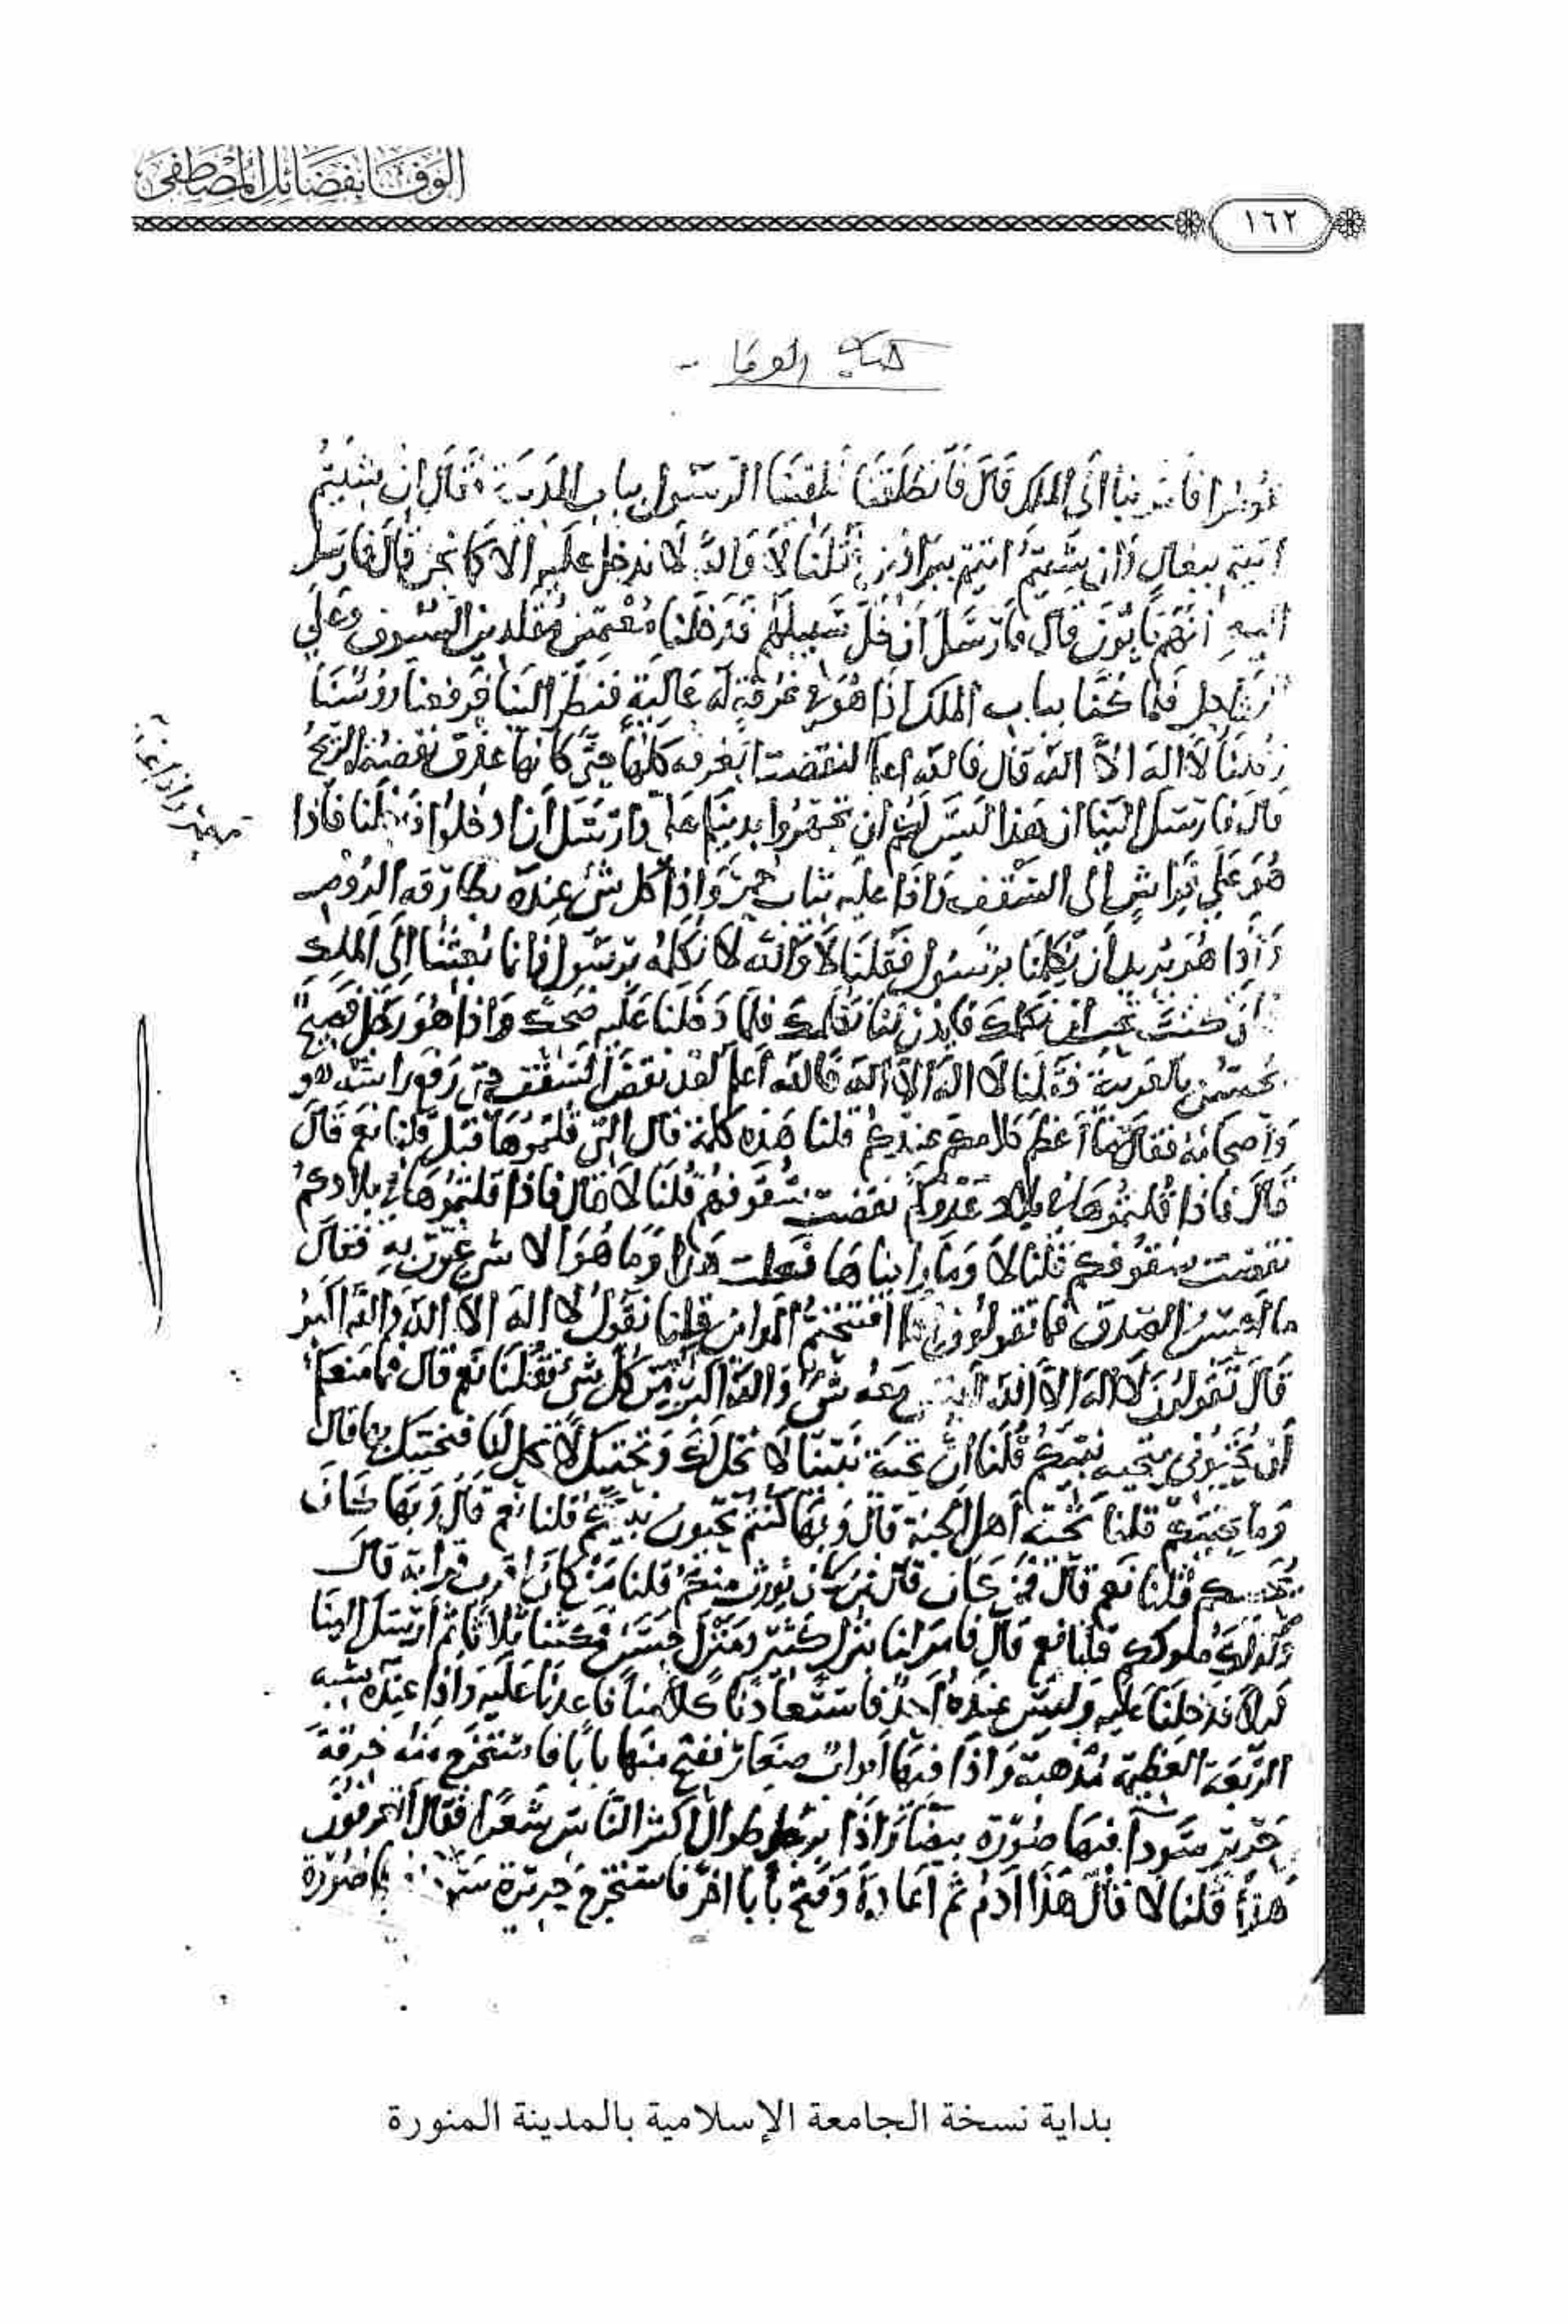 الوفا بفضائل المصطفى
١٦٢
كتاب الوفا
فانطلق بنا الى الملك قال فانطلقنا فلقينا الرسول بباب المدينة فقال ان شيتم
اتيتم ببغال وان شيتم اتيتم ببراذين قلنا لا والله لا ندخل عليه الا كما نحن قال فارسل
اليه انهم يابون قال فارسل ان خل سبيلهم فدخلنا معتمين متقلدين السيوف وعلي
الرواحل فلما كنا بباب الملك اذا هو في غرفة له عالية فنظر الينا فرفعنا روسنا
فقلنا لا اله الا الله قال فالله اعلم لنقضت الغرفة كلها حتى كانها عذق نفضته الريح
قال فارسل الينا ان هذا ليس لكم ان تجهروا بدينكم علي وارسل ان ادخلوا فدخلنا فاذا
هو على فراش الى السقف واذا عليه ثياب حمر واذا كل شي عنده بطارقه الروم
واذا هو يريد ان يكلمنا برسول فقلنا لا والله لا نكلمه برسول فانما بعثنا الى الملك
فان كنت تحب ان نكلمك فايذن لنا نكلمك فلما دخلنا عليه ضحك واذا هو رجل فصيح
يحسن بالعربية فقلنا لا اله الا الله فالله اعلم لقد نقض السقف حتى رفع راسه هو
واصحابه فقال ما اعظم كلامكم عندكم قلنا هذه كلمة قال التي قلتموها قبل قلنا نعم قال
قال فاذا قلتموها في بلاد عدوكم نقضت سقوفهم قلنا لا قال فاذا قلتموها في بلادكم
نقضت سقوفكم قلنا لا وما رايناها فعلت هذا وما هو الا شي عبرت به فقال
ما احسن الصدق فما تقولون اذا افتتحتم المداين قلنا نقول لا اله الا الله والله اكبر
قال تقولون لا اله الا الله ليس معه شي والله اكبر من كل شي فقلنا نعم قال فما منعكم
ان تحيوني بتحية نبيكم قلنا ان تحية نبينا لا تحل لك وتحيتك لا تحل لنا فنحييك بها قال
وما تحيتكم قلنا تحية اهل الجنة قال وبها كنتم تحيون نبيكم قلنا نعم قال وبها كان
يحييكم قلنا نعم قال فمن كان قال يورث منكم قلنا من كان اقرب قرابة قال
وكذلك ملوككم قلنا نعم قال فامر لنا بنزل كثير ومنزل حسن فمكثنا ثلاثا ثم ارسل الينا
ليلا فدخلنا عليه وليس عنده احد فاستعادنا كلامنا فاعدنا عليه واذا عنده شبه
الربعة العظيمة مذهبة واذا فيها ابواب صغار ففتح منها بابا فاستخرج منه خرقة
حرير سودا فيها صورة بيضا واذا رجل طوال اكثر الناس شعرا فقال اتعرفون
هذا قلنا لا قال هذا ادم ثم اعاده وفتح بابا اخر فاستخرج حريرة صورة
بداية نسخة الجامعة الإسلامية بالمدينة المنورة